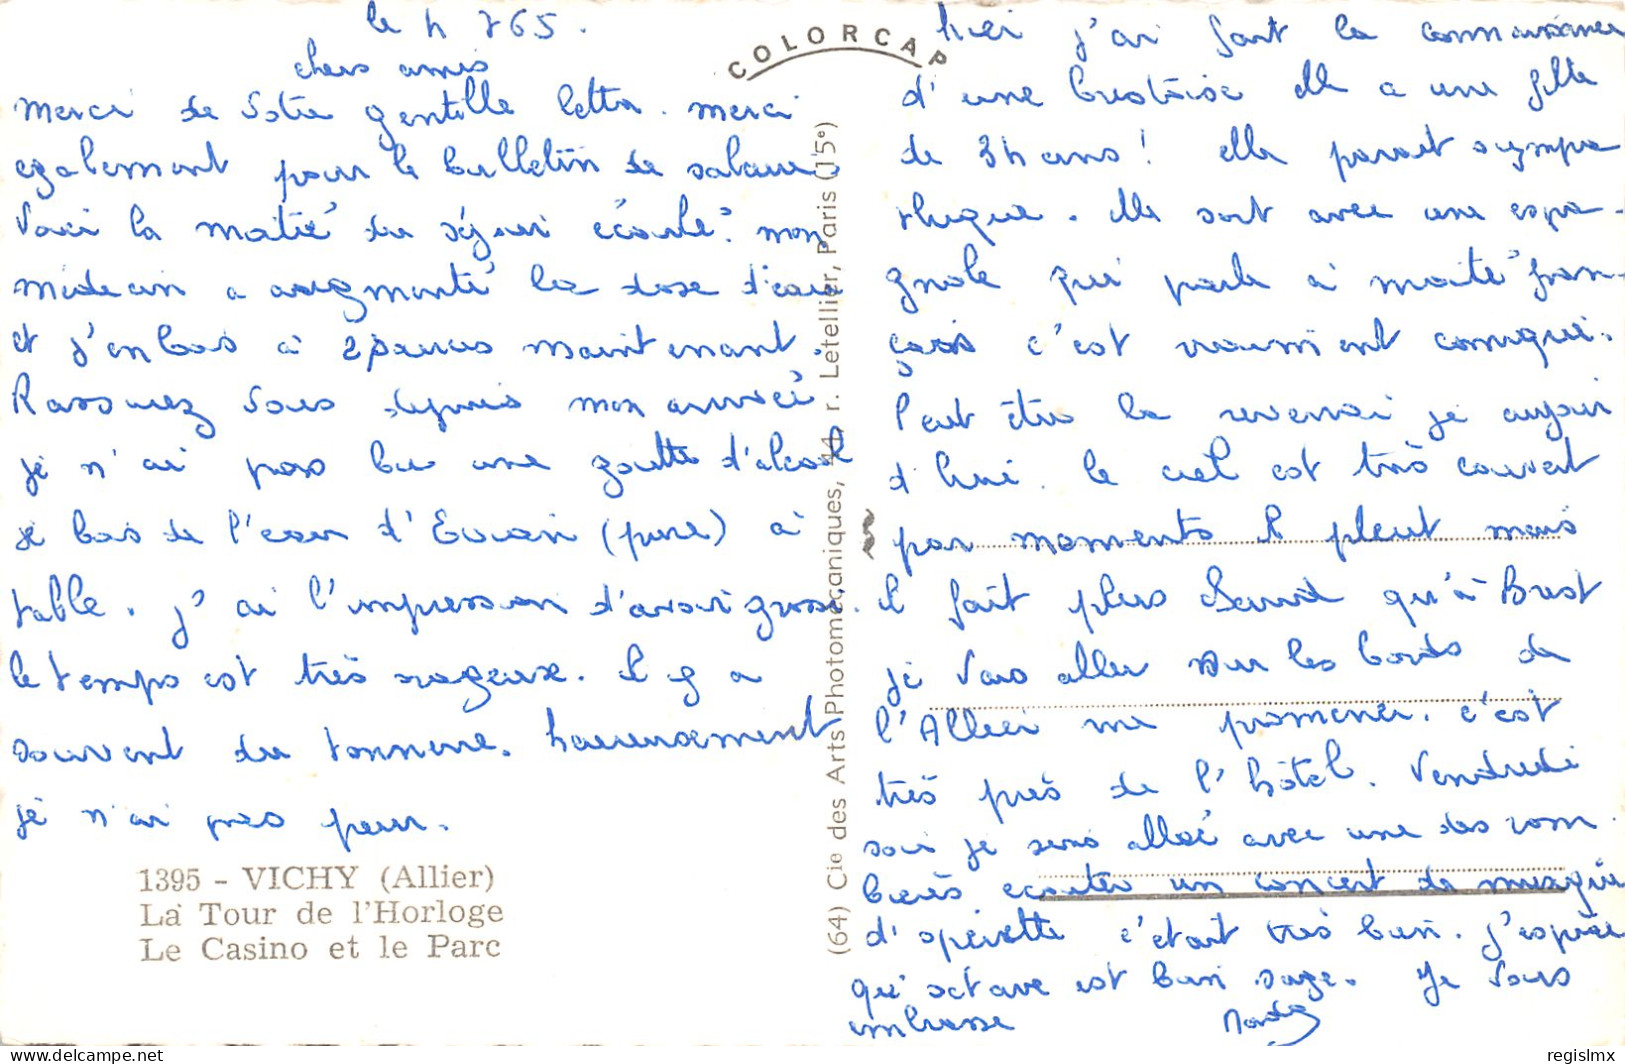 le 4 7 65.
chers amis
merci de votre gentille lettre. merci
egalement pour le bulletin de salaire.
Voici la moitié du séjour écoulé. mon
médecin a augmenté la dose d'eau
et j'en bois à 2 sources maintenant.
Rassurez vous depuis mon arrivée
je n'ai pas bu une goutte d'alcool
je bois de l'eau d'Evian (pure) à
table. j'ai l'impression d'avoir grossi.
le temps est très orageux. il y a
souvent du tonnerre. heureusement
je n'ai pas peur.
1395 - VICHY (Allier)
La Tour de l'Horloge
Le Casino et le Parc
COLORCAP
(64) Cie des Arts Photomécaniques, 44, r. Letellier, Paris (15e)
hier j'ai fait la connaissance
d'une brestoise elle a une fille
de 34 ans! elle parait sympa
thique. elle sort avec une espa-
gnole qui parle à moitié fran-
çais c'est vraiment comique.
Peut être la reverrai je aujour
d'hui. le ciel est très couvert
par moments il pleut mais
il fait plus lourd qu'à Brest
je vais aller sur les bords de
l'Allier me promener. c'est
très près de l'hôtel. Vendredi
soir je suis allée avec une des rom
bières ecouter un concert de musique
d'opérette c'était très bien. j'espère
qu'octave est bien sage. Je vous
embrasse
regislmx